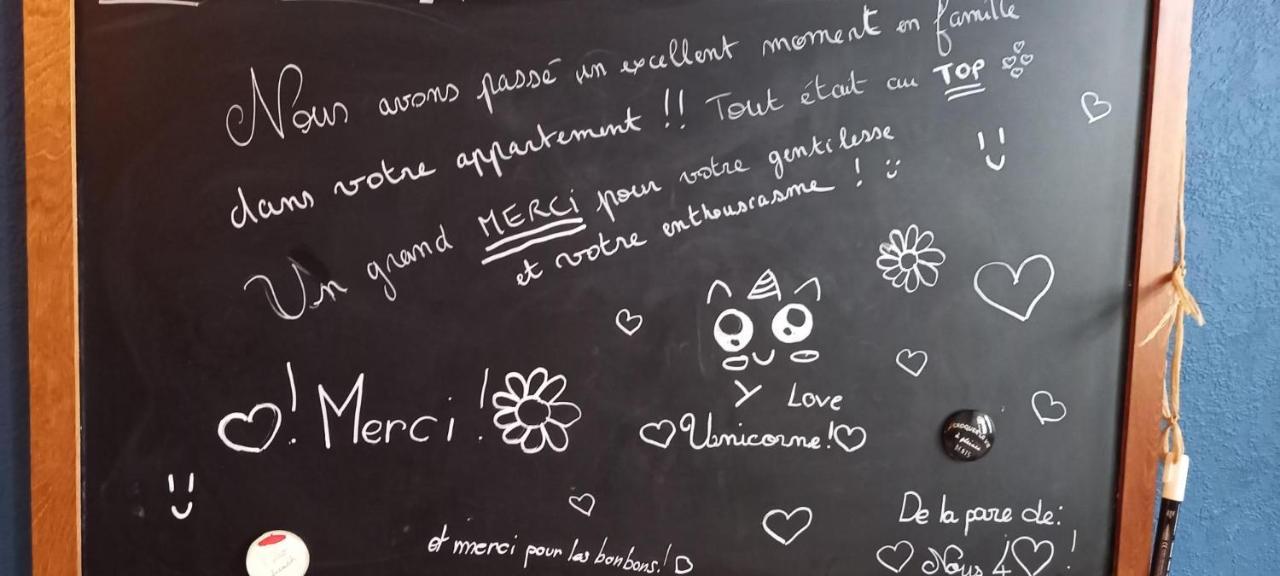 Nous avons passé un excellent moment en famille
dans votre appartement !! Tout était au TOP
Un grand MERCi pour votre gentilesse
et votre enthousiasme !
! Merci !
Y Love
Unicorne!
et merci pour las bonbons!
De la pare de:
Nous 4 !